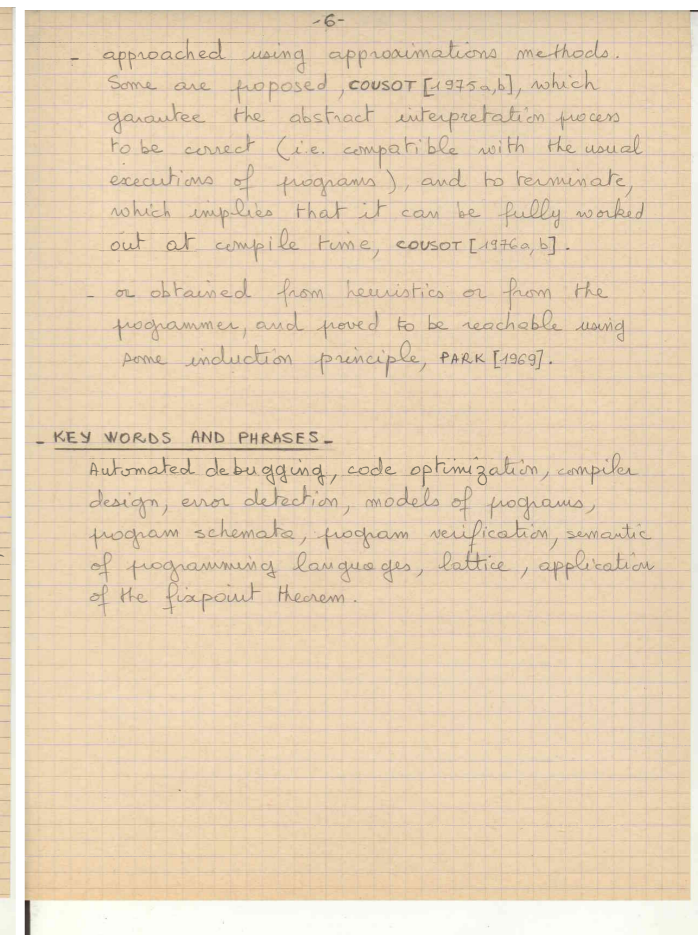 -6-
- approached using approximations methods.
Some are proposed, COUSOT [1975a,b], which
garantee the abstract interpretation process
to be correct (i.e. compatible with the usual
executions of programs), and to terminate,
which implies that it can be fully worked
out at compile time, COUSOT [1976a,b].
- or obtained from heuristics or from the
programmer, and proved to be reachable using
some induction principle, PARK [1969].
- KEY WORDS AND PHRASES -
Automated debugging, code optimization, compiler
design, error detection, models of programs,
program schemata, program verification, semantic
of programming languages, lattice, application
of the fixpoint theorem.